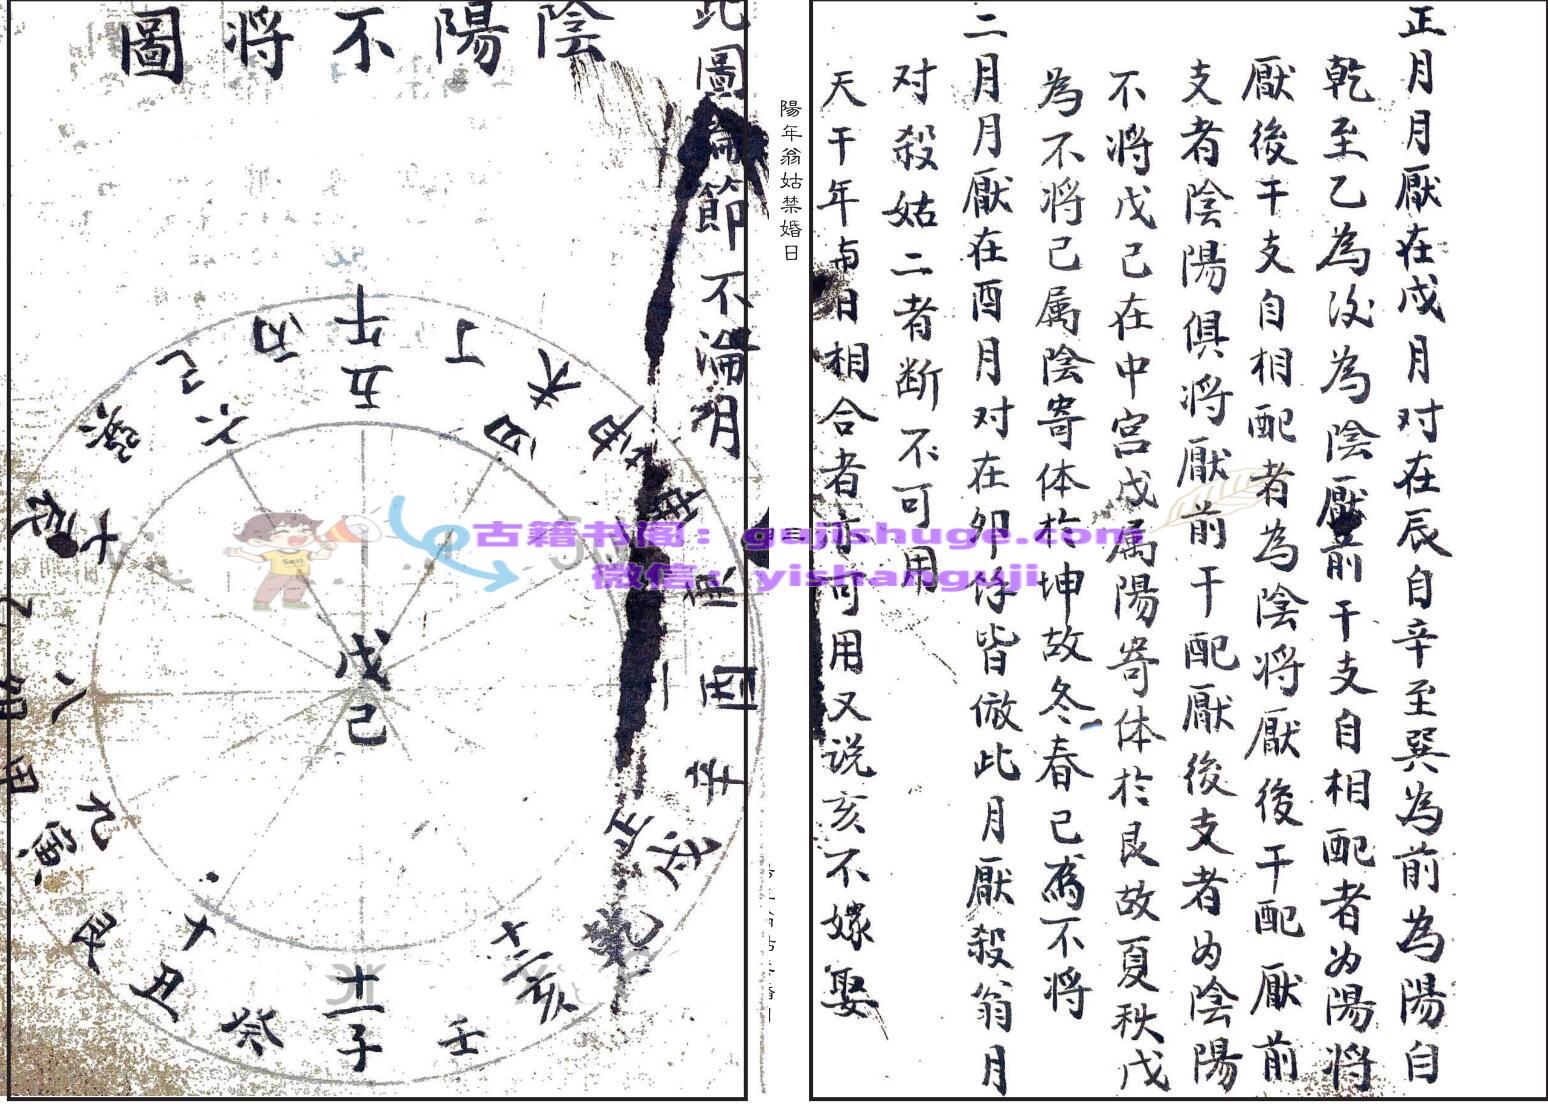 正月月厭在戌月对在辰自辛至巽為前為陽自
乾至乙為後為陰厭前干支自相配者为陽將
厭後干支自相配者為陰將厭後干配厭前
支者陰陽俱將厭前干配厭後支者为陰陽
不將戊己在中宮戊属陽寄体於艮故夏秋戊
為不將己属陰寄体於坤故冬春己為不將
二月月厭在酉月对在卯餘皆倣此月厭殺翁月
对殺姑二者断不可用
天干年南日相合者亦可用又说亥不嫁娶
陽年翁姑禁婚日
三
此圖論節不論月
陰陽不將圖
午
丁
未
申
坤
庚
酉
辛
戌
乾
亥
壬
子
癸
丑
艮
寅
甲
卯
乙
辰
巽
巳
丙
五
四
二
正
十二
十一
十
九
八
七
六
戊
己
古籍书阁：gujishuge.com
微信：yishanguji